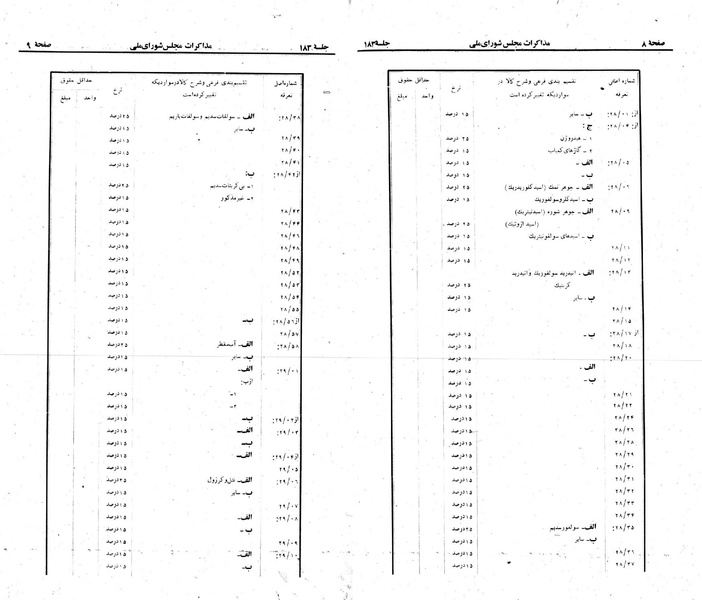 صفحهٔ ۸ مذاکرات مجلس شورای ملی جلسهٔ ۱۸۳
شماره اصلی تعرفه تقسیم بندی فرعی وشرح کلا در مواردیکه تغییر کرده است نرخ حداقل حقوق واحد مبلغ
از: ۲۸/۰۱ ب ـ سایر ۱۵ درصد
از: ۲۸/۰۴ ج :
۱ ـ هیدروژن ۱۵ درصد
۲ ـ گازهای کمیاب ۱۵ درصد
۲۸/۰۵ الف ـ ۱۵ درصد
ب ـ ۱۵ درصد
۲۸/۰۶ الف ـ جوهر نمک (اسید کلوریدریک) ۲۵ درصد
ب ـ اسید کلروسولفوریک ۱۵ درصد
۲۸/۰۹ الف ـ جوهر شوره (اسیدنیتریک)
(اسید ازوتیک) ۲۵ درصد
ب ـ اسیدهای سولفونیتریک ۱۵ درصد
۲۸/۱۱ ۱۵ درصد
۲۸/۱۲ ۱۵ درصد
۲۸/۱۳ الف . انیدرید سولفوریک وانیدرید
کربنیک ۲۵ درصد
ب . سایر ۱۵ درصد
۲۸/۱۴ ۱۵ درصد
۲۸/۱۵ ۱۵ درصد
از ۲۸/۱۷: ب ـ ۱۵ درصد
۲۸/۱۸ ۱۵ درصد
۲۸/۲۰: ۱۵ درصد
الف . ۱۵ درصد
ب ـ ۱۵ درصد
۲۸/۲۱ ۱۵ درصد
۲۸/۲۲ ۱۵ درصد
۲۸/۲۴ ۱۵ درصد
۲۸/۲۶ ۱۵ درصد
۲۸/۲۸ ۱۵ درصد
۲۸/۲۹ ۱۵ درصد
۲۸/۳۰ ۱۵ درصد
۲۸/۳۱ ۱۵ درصد
۲۸/۳۲ ۱۵ درصد
۲۸/۳۳ ۱۵ درصد
۲۸/۳۴ ۱۵ درصد
۲۸/۳۵: الف ـ سولفورسدیم ۲۵ درصد
ب ـ سایر ۱۵ درصد
۲۸/۳۶ ۱۵ درصد
۲۸/۳۷ ۱۵ درصد
جلسهٔ ۱۸۳ مذاکرات مجلس شورای ملی صفحهٔ ۹
شماره اصلی تعرفه تقسیم بندی فرعی وشرح کلا درمواردیکه تغییر کرده است نرخ حداقل حقوق واحد مبلغ
۲۸/۳۸: الف ـ سولفات سدیم وسولفات باریم ۲۵ درصد
ب ـ سایر ۱۵ درصد
۲۸/۳۹ ۱۵ درصد
۲۸/۴۰ ۱۵ درصد
۲۸/۴۱ ۱۵ درصد
از ۲۸/۴۲: ب:
۱ـ بی کربنات سدیم ۲۵ درصد
۲ـ غیرمذکور ۱۵ درصد
۲۸/۴۳ ۱۵ درصد
۲۸/۴۴ ۱۵ درصد
۲۸/۴۶ ۱۵ درصد
۲۸/۴۸ ۱۵ درصد
۲۸/۴۹ ۱۵ درصد
۲۸/۵۲ ۱۵ درصد
۲۸/۵۳ ۱۵ درصد
۲۸/۵۴ ۱۵ درصد
۲۸/۵۵ ۱۵ درصد
از ۲۸/۵۶: ب ـ ۱۵ درصد
۲۸/۵۷ ۱۵ درصد
۲۸/۵۸: الف ـ آب مقطر ۲۵ درصد
ب ـ سایر ۱۵ درصد
۲۹/۰۱: الف ـ ۱۵ درصد
از ب:
۱ـ ۱۵ درصد
۲ـ ۱۵ درصد
از ۲۹/۰۲: ب ـ ۱۵ درصد
۲۹/۰۳: الف ـ ۱۵ درصد
ب ـ ۱۵ درصد
از ۲۹/۰۴: الف ـ ۱۵ درصد
۲۹/۰۵ ۱۵ درصد
۲۹/۰۶: الف ـ فنل وکرزول ۲۵ درصد
ب ـ سایر ۱۵ درصد
۲۹/۰۷ ۱۵ درصد
۲۹/۰۸: الف ـ ۱۵ درصد
ب ـ ۱۵ درصد
۲۹/۰۹ ۱۵ درصد
۲۹/۱۰: الف ـ ۱۵ درصد
ب ـ ۱۵ درصد